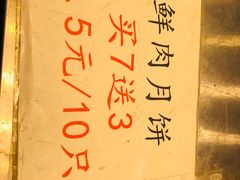 鲜肉月饼
买7送3
.5元/10只